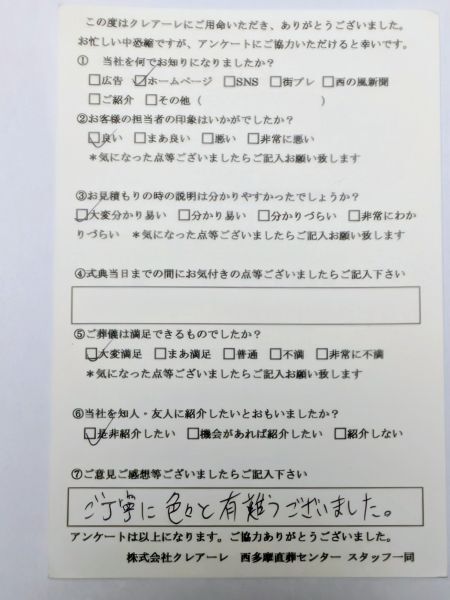 この度はクレアーレにご用命いただき、ありがとうございました。
お忙しい中恐縮ですが、アンケートにご協力いただけると幸いです。
① 当社を何でお知りになりましたか？
□広告 ☑ホームページ □SNS □街プレ □西の風新聞
□ご紹介 □その他（ ）
②お客様の担当者の印象はいかがでしたか？
☑良い □まあ良い □悪い □非常に悪い
＊気になった点等ございましたらご記入お願い致します
③お見積もりの時の説明は分かりやすかったでしょうか？
☑大変分かり易い □分かり易い □分かりづらい □非常にわか
りづらい ＊気になった点等ございましたらご記入お願い致します
④式典当日までの間にお気付きの点等ございましたらご記入下さい
⑤ご葬儀は満足できるものでしたか？
☑大変満足 □まあ満足 □普通 □不満 □非常に不満
＊気になった点等ございましたらご記入お願い致します
⑥当社を知人・友人に紹介したいとおもいましたか？
☑是非紹介したい □機会があれば紹介したい □紹介しない
⑦ご意見ご感想等ございましたらご記入下さい
ご丁寧に色々と有難うございました。
アンケートは以上になります。ご協力ありがとうございました。
株式会社クレアーレ 西多摩直葬センター スタッフ一同